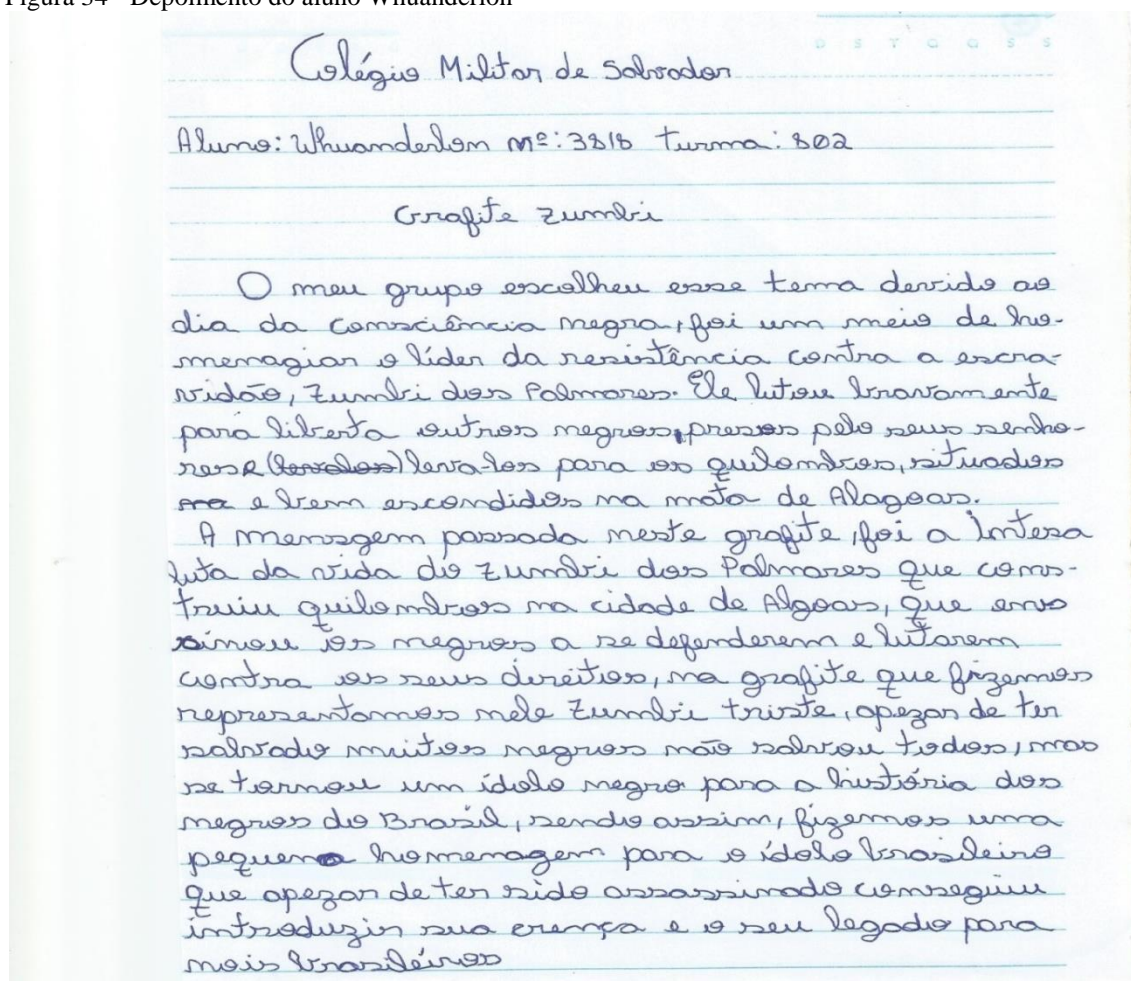 Figura 34 - Depoimento do aluno Whuanderlon
D S T Q Q S S
Colégio Militar de Salvador
Aluno: Whuanderlon nº: 3818 turma: 802
Grafite Zumbi
O meu grupo escolheu esse tema devido ao
dia da consciência negra, foi um meio de ho-
menagiar o líder da resistência contra a escra-
vidão, Zumbi dos Palmares. Ele lutou bravamente
para liberta outros negros, presos pelo seus senho-
res e (levalos) leva-los para os quilombros, situados
na e bem escondidos na mata de Alagoas.
A mensagem passada neste grafite, foi a Intesa
luta da vida do Zumbi dos Palmares que cons-
truiu quilombros na cidade de Algoas, que ens
sinou os negros a se defenderem e lutarem
contra os seus direitos, na grafite que fizemos
representamos nele Zumbi triste, apezar de ter
salvado muitos negros não salvou todos, mas
se tornou um ídolo negro para a história dos
negros do Brasil, sendo assim, fizemos uma
pequena homenagem para o ídolo brasileiro
que apezar de ter sido assassinado conseguiu
introduzir sua crença e o seu legado para
mais brasileiros